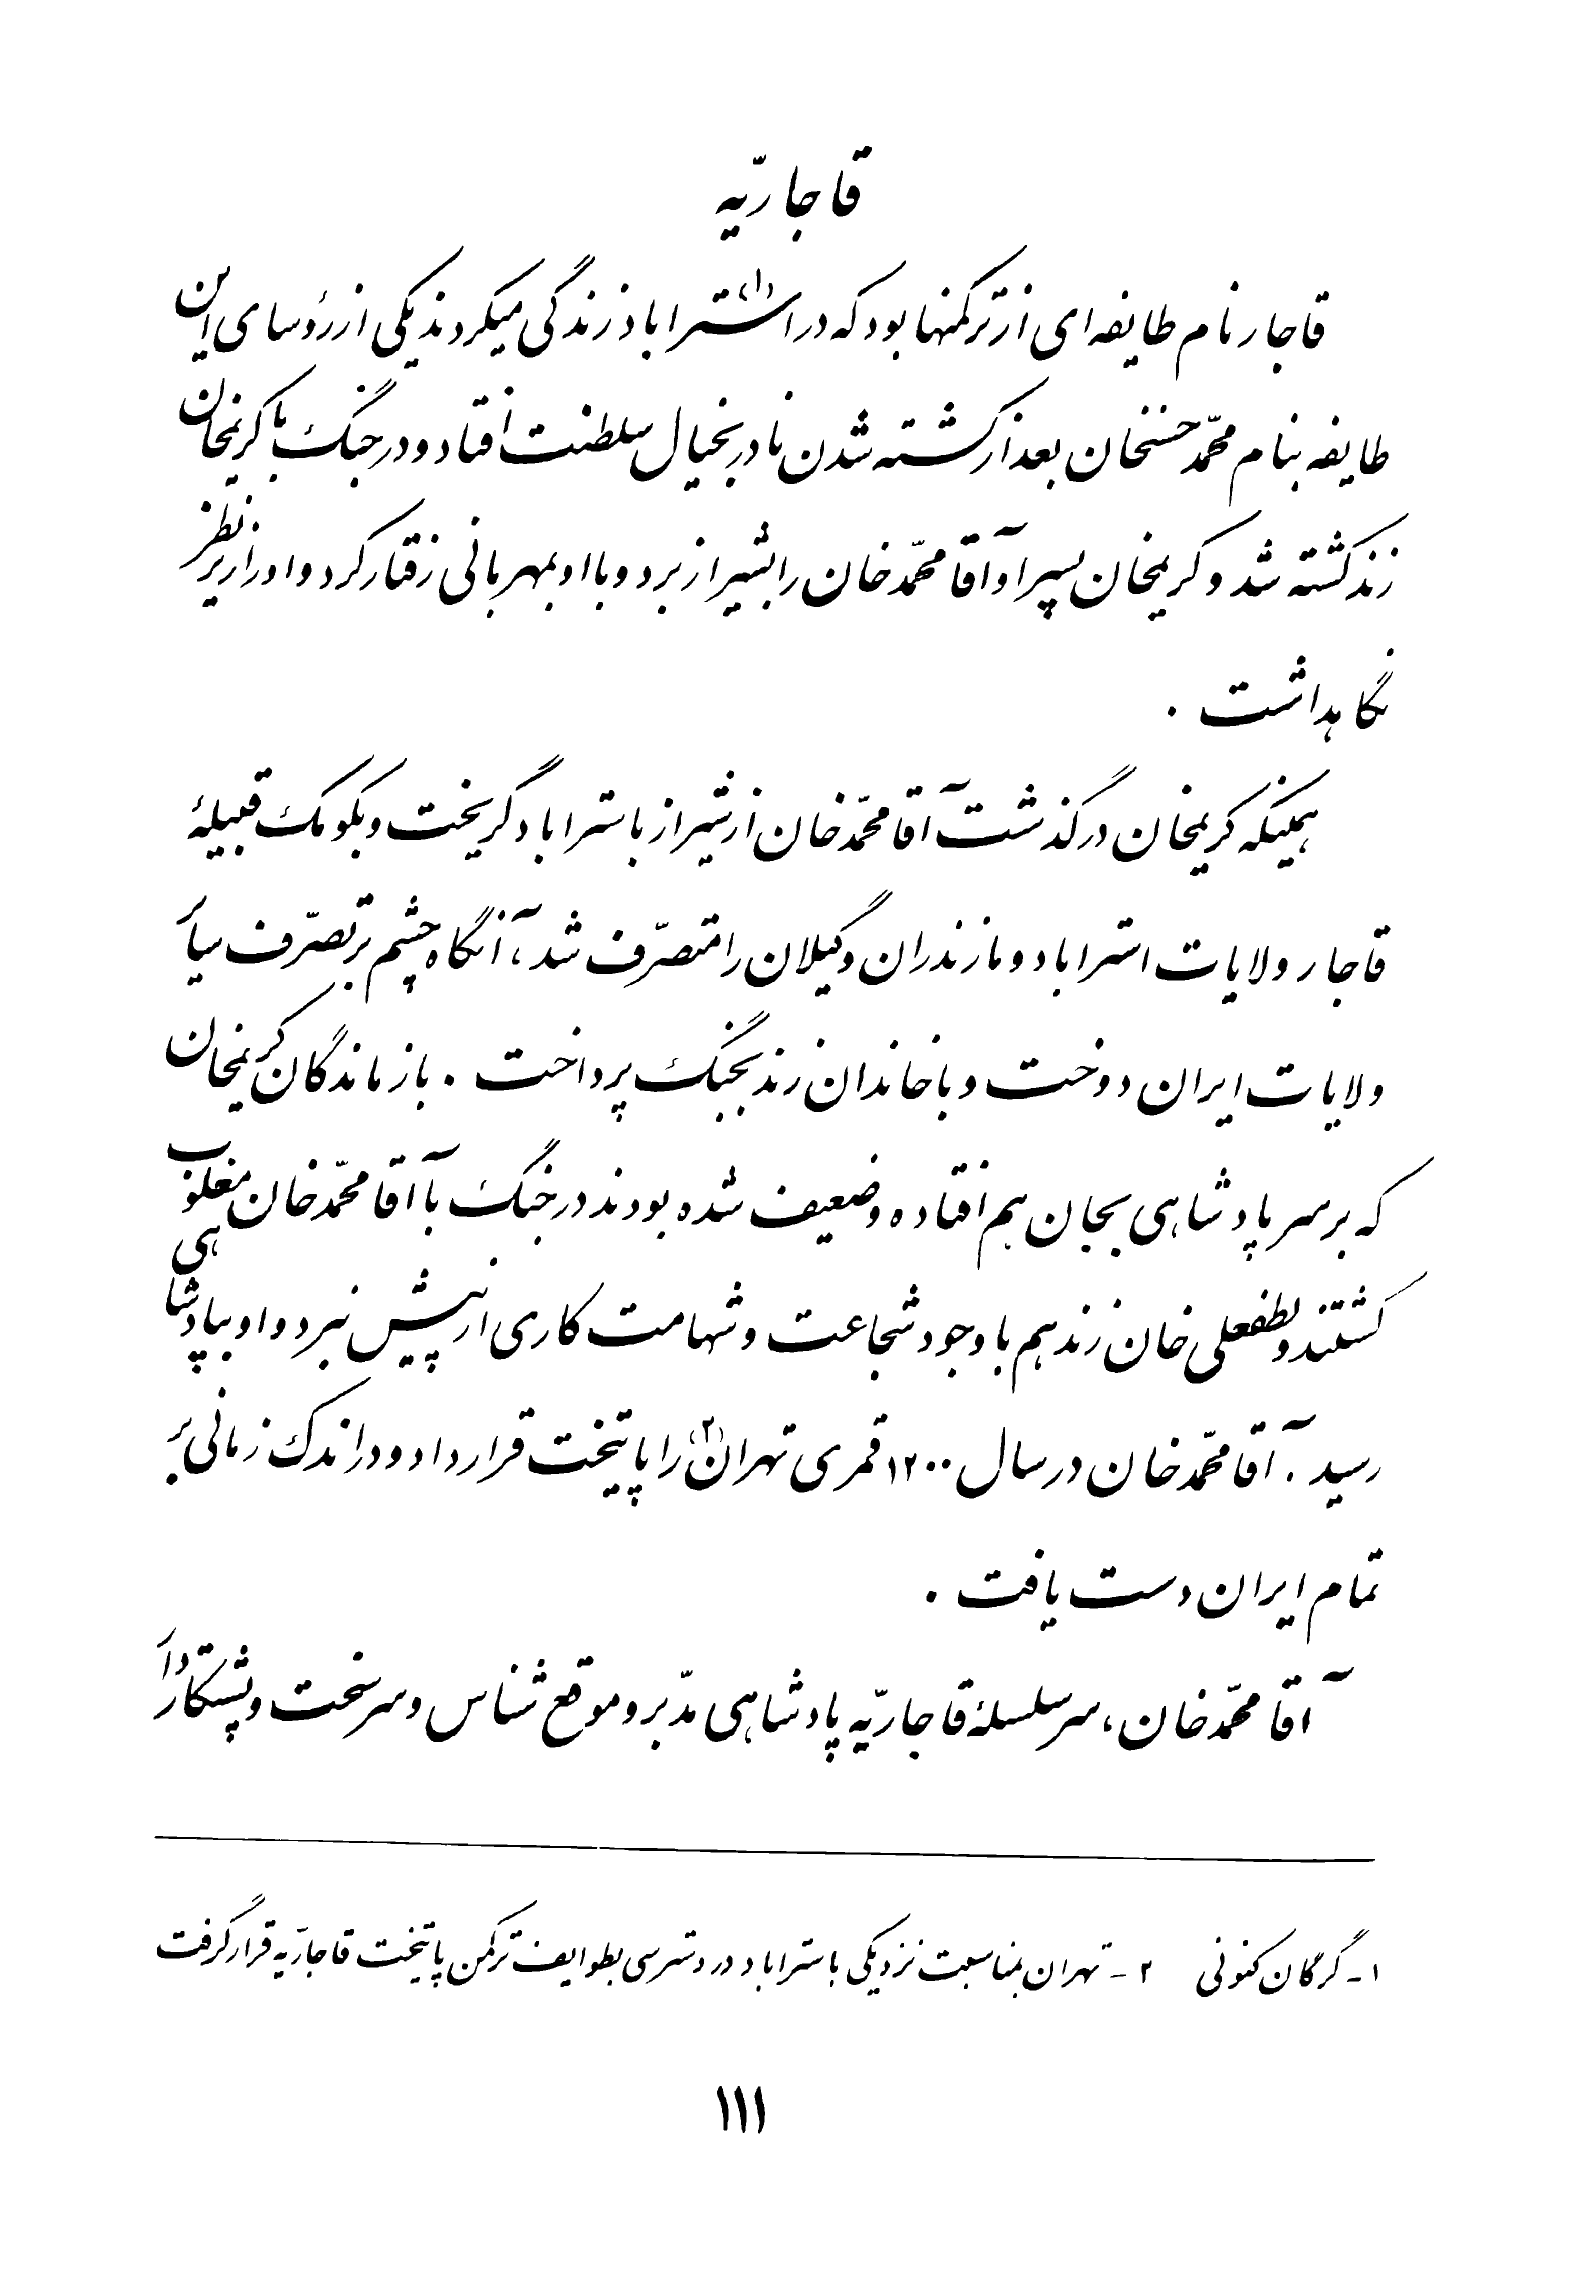 قاجاریّه
قاجار نام طایفه‌ای از ترکمنها بود که در استراباد (۱) زندگی میکردند یکی از رؤسای این
طایفه بنام محمّد حسنخان بعد از کشته شدن نادر بخیال سلطنت افتاد و در جنگ با کریمخان
زند کشته شد و کریمخان پسر او آقا محمّد خان را بشیراز برد و با او بمهربانی رفتار کرد و او را زیر نظر
نگاهداشت .
همینکه کریمخان درگذشت آقا محمّد خان از شیراز باستراباد گریخت و بکومک قبیلهٔ
قاجار ولایات استراباد و مازندران و گیلان را متصرّف شد، آنگاه چشم بر تصرّف سایر
ولایات ایران دوخت و با خاندان زند بجنگ پرداخت . بازماندگان کریمخان
که بر سر پادشاهی بجان هم افتاده و ضعیف شده بودند در جنگ با آقا محمّد خان مغلوب
گشتند و لطفعلی خان زند هم با وجود شجاعت و شهامت کاری از پیش نبرد و او بپادشاهی
رسید . آقا محمّد خان در سال ۱۲۰۰ قمری تهران (۲) را پایتخت قرار داد و در اندک زمانی بر
تمام ایران دست یافت .
آقا محمّد خان، سرسلسلهٔ قاجاریّه پادشاهی مدّبر و موقع شناس و سرسخت و پشتکاردار
۱- گرگان کنونی ۲- تهران بمناسبت نزدیکی باستراباد و دسترسی بطوایف ترکمن پایتخت قاجاریّه قرار گرفت
۱۱۱